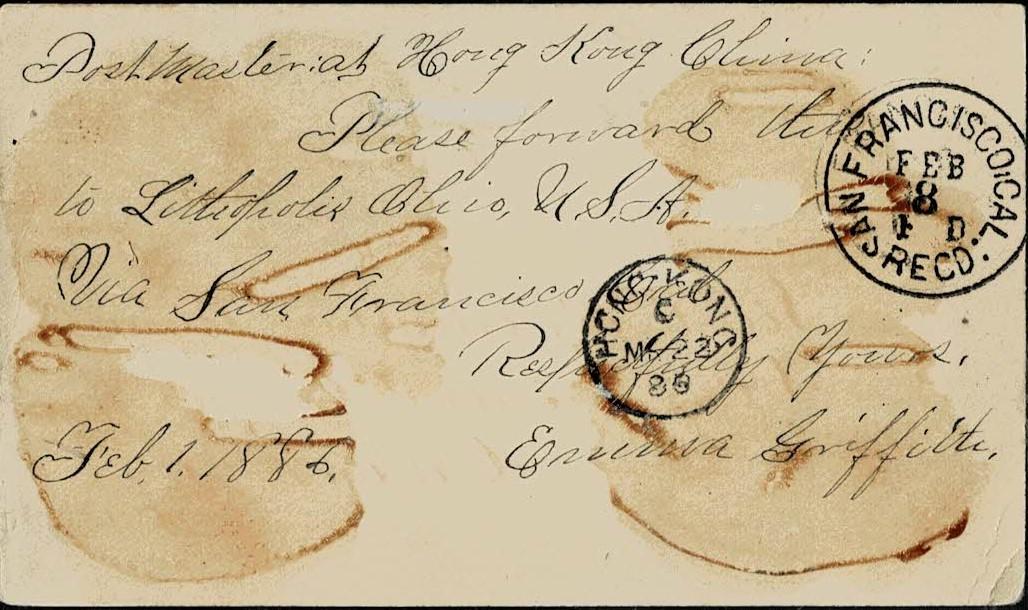 Postmaster at Hong Kong China:
Please forward this
to Lithopolis Ohio, U.S.A.
Via San Francisco Cal
Respectfully Yours.
Feb. 1. 1886. Emma Griffith.
SAN FRANCISCO. CAL.
FEB
8
RECD.
HONG KONG
C
22
86